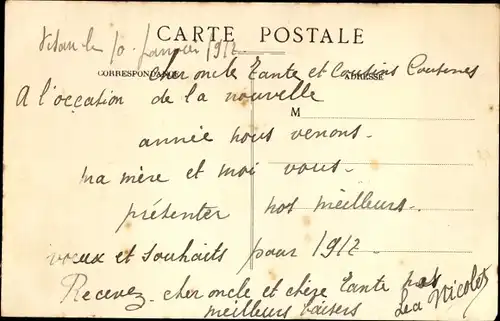 CARTE POSTALE
Visan le 10 Janvier 1912
CORRESPONDANCE
ADRESSE
cher oncle Tante et Cousins Cousines
A l'occation de la nouvelle
M
année nous venons
ma mère et moi vous
présenter nos meilleurs
voeux et souhaits pour 1912
Recevez cher oncle et chère Tante nos
meilleurs baisers
Lea Nicolet